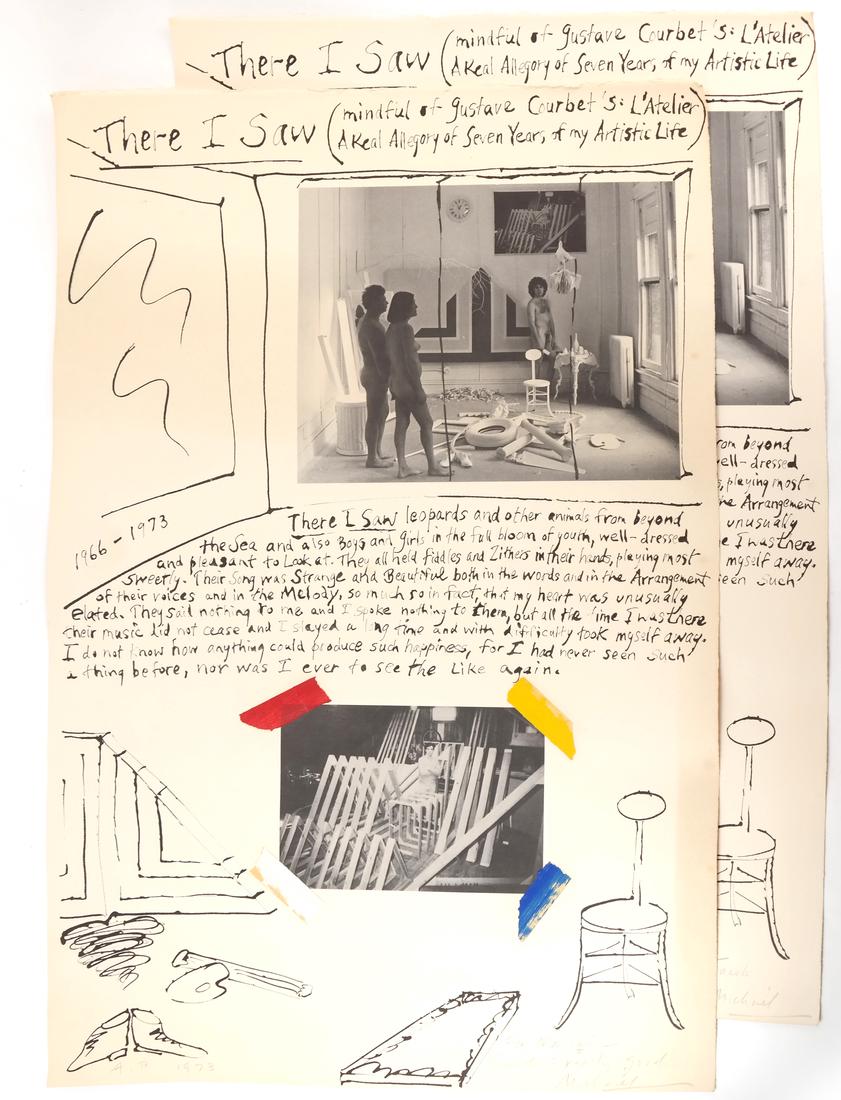 There I Saw (mindful of Gustave Courbet's: L'Atelier
A Real Allegory of Seven Years, of my Artistic Life)
There I Saw (mindful of Gustave Courbet's: L'Atelier
A Real Allegory of Seven Years, of my Artistic Life)
1966-1973
There I Saw leopards and other animals from beyond
the Sea and also Boys and Girls in the full bloom of youth, well-dressed
and pleasant to Look at. They all held fiddles and Zithers in their hands, playing most
sweetly. Their Song was Strange and Beautiful both in the words and in the Arrangement
of their voices and in the Melody, so much so in fact, that my heart was unusually
elated. They said nothing to me and I spoke nothing to them, but all the time I was there
their music did not cease and I stayed a long time and with difficulty took myself away.
I do not know how anything could produce such happiness, for I had never seen such
a thing before, nor was I ever to see the Like again.
from beyond
well-dressed
playing most
the Arrangement
unusually
I was there
myself away.
seen such
A.P. 1973
Michael
Michael